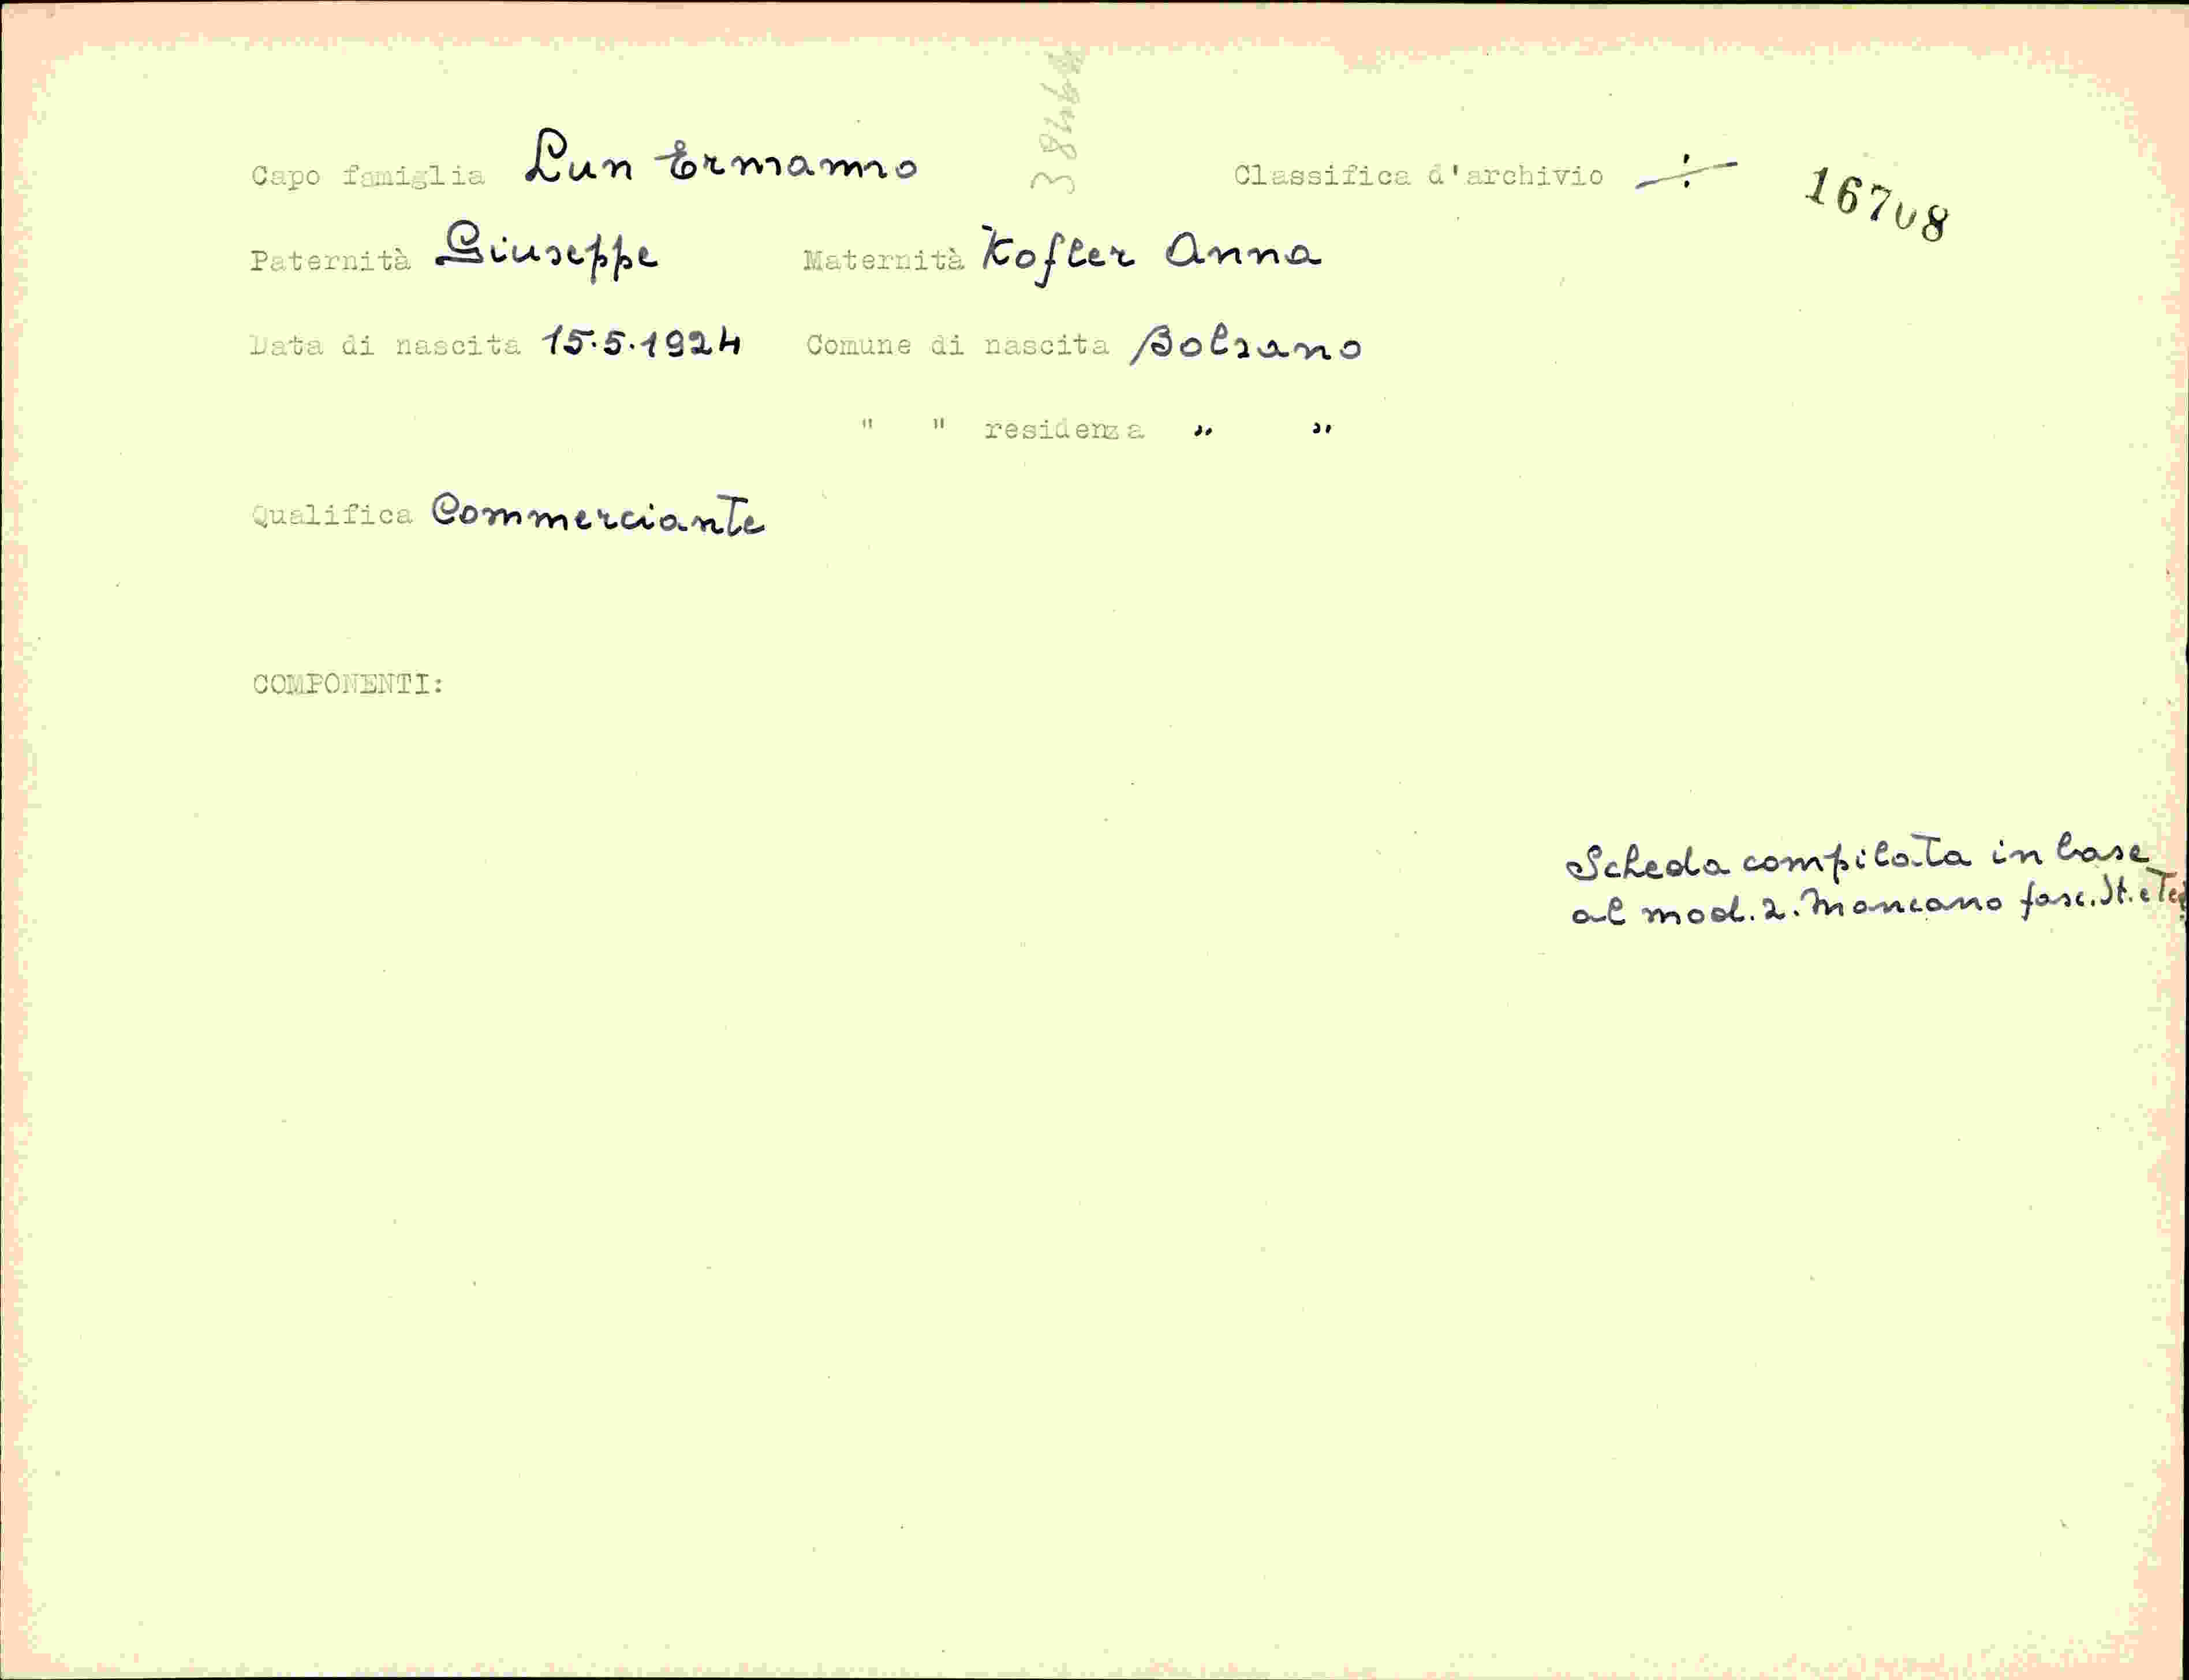 Capo famiglia Lun Ermanno Classifica d'archivio ÷ 16708
Paternità Giuseppe Maternità Kofler Anna
Data di nascita 15.5.1924 Comune di nascita Bolzano
" " residenza " "
Qualifica Commerciante
COMPONENTI:
Scheda compilata in base
al mod. 2. Mancano fasc. It. e Ted